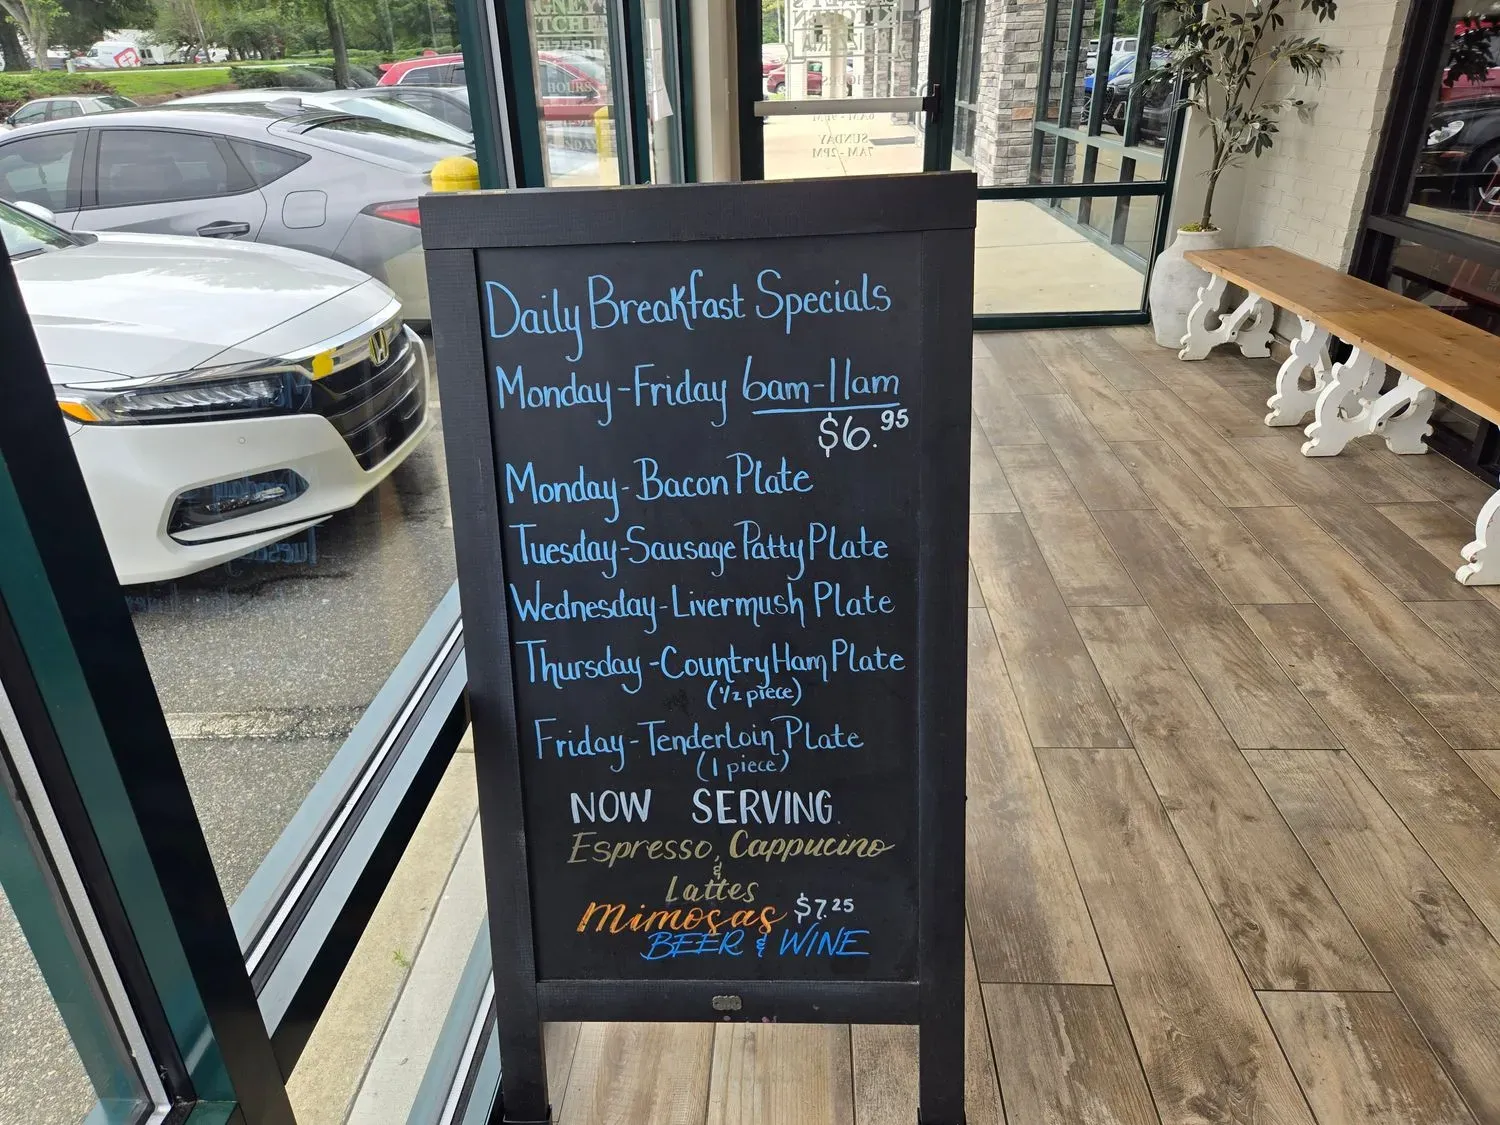 Daily Breakfast Specials
Monday-Friday 6am-11am
$6.95
Monday-Bacon Plate
Tuesday-Sausage Patty Plate
Wednesday-Livermush Plate
Thursday-Country Ham Plate
(1/2 piece)
Friday-Tenderloin Plate
(1 piece)
NOW SERVING
Espresso, Cappucino
&
Lattes
Mimosas $7.25
BEER & WINE
SUNDAY
7AM-2PM